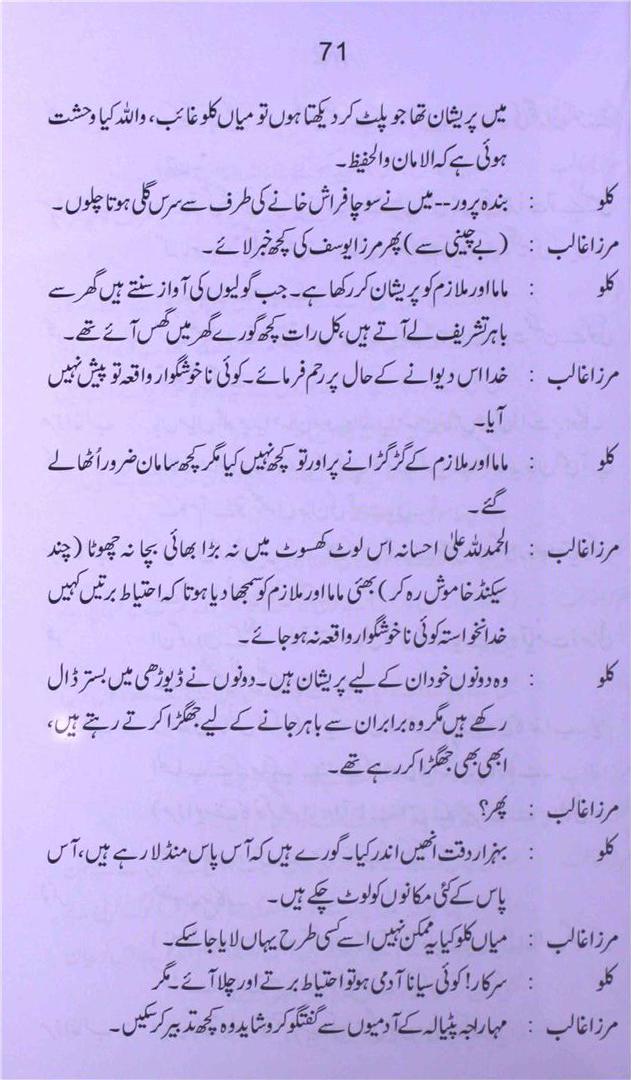 71
میں پریشان تھا جو پلٹ کر دیکھتا ہوں تو میاں کلو غائب، واللہ کیا وحشت
ہوئی ہے کہ الامان والحفیظ۔
کلو : بندہ پرور--میں نے سوچا فراش خانے کی طرف سے سرس گلی ہوتا چلوں۔
مرزا غالب : (بے چینی سے) پھر مرزا یوسف کی کچھ خبر لائے۔
کلو : ماما اور ملازم کو پریشان کر رکھا ہے۔ جب گولیوں کی آواز سنتے ہیں گھر سے
باہر تشریف لے آتے ہیں، کل رات کچھ گورے گھر میں گھس آئے تھے۔
مرزا غالب : خدا اس دیوانے کے حال پر رحم فرمائے۔ کوئی ناخوشگوار واقعہ تو پیش نہیں
آیا۔
کلو : ماما اور ملازم کے گڑگڑانے پر اور تو کچھ نہیں کیا مگر کچھ سامان ضرور اُٹھا لے
گئے۔
مرزا غالب : الحمدللہ علیٰ احسانہ اس لوٹ کھسوٹ میں نہ بڑا بھائی بچا نہ چھوٹا (چند
سیکنڈ خاموش رہ کر) بھئی ماما اور ملازم کو سمجھا دیا ہوتا کہ احتیاط برتیں کہیں
خدانخواستہ کوئی ناخوشگوار واقعہ نہ ہو جائے۔
کلو : وہ دونوں خود ان کے لیے پریشان ہیں۔ دونوں نے ڈیوڑھی میں بستر ڈال
رکھے ہیں مگر وہ برابر ان سے باہر جانے کے لیے جھگڑا کرتے رہتے ہیں،
ابھی بھی جھگڑا کر رہے تھے۔
مرزا غالب : پھر؟
کلو : بہزار دقت انھیں اندر کیا۔ گورے ہیں کہ آس پاس منڈلا رہے ہیں، آس
پاس کے کئی مکانوں کو لوٹ چکے ہیں۔
مرزا غالب : میاں کلو کیا یہ ممکن نہیں اسے کسی طرح یہاں لایا جا سکے۔
کلو : سرکار! کوئی سیانا آدمی ہو تو احتیاط برتے اور چلا آئے۔ مگر
مرزا غالب : مہاراجہ پٹیالہ کے آدمیوں سے گفتگو کرو شاید وہ کچھ تدبیر کر سکیں۔